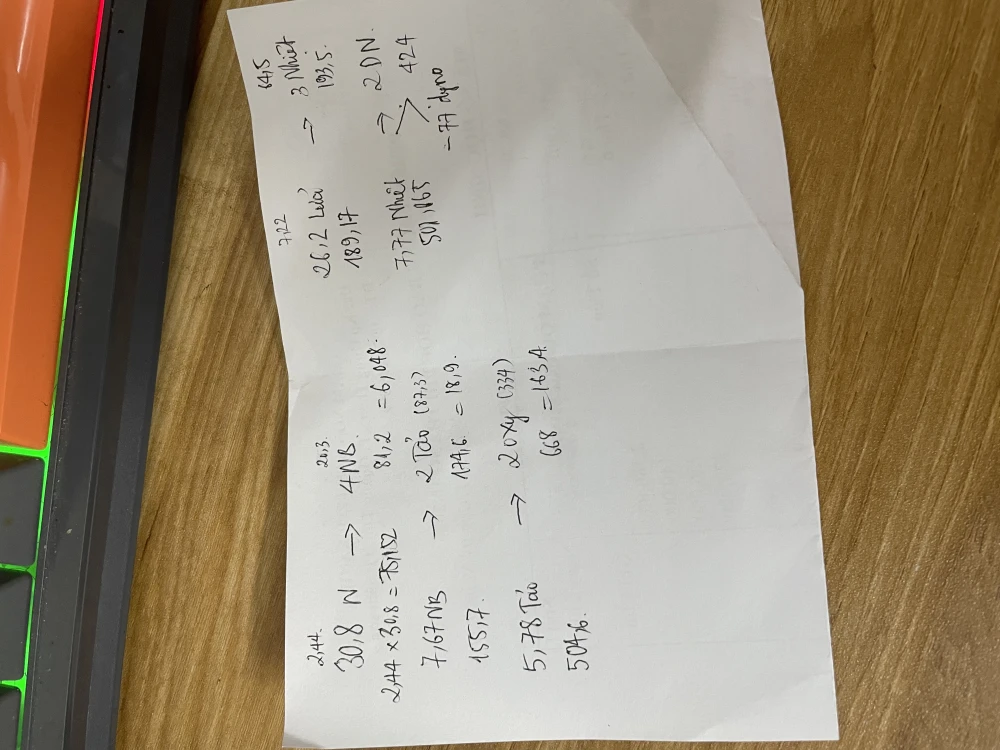 2,44. 20,3
30,8 N → 4NB.
2,44 x 30,8 = 75,152 81,2 = 6,048.
7,67 NB → 2 Táo (87,3)
155,7. 174,6. = 18,9.
5,78 Táo → 2 oxy (334)
504,6. 668 = 163,4.
7,22 64,5
26,2 Lửa → 3 Nhiệt
189,17 193,5.
7,77 Nhiệt → 2 DN.
501,165 > 424
= 77 dyno